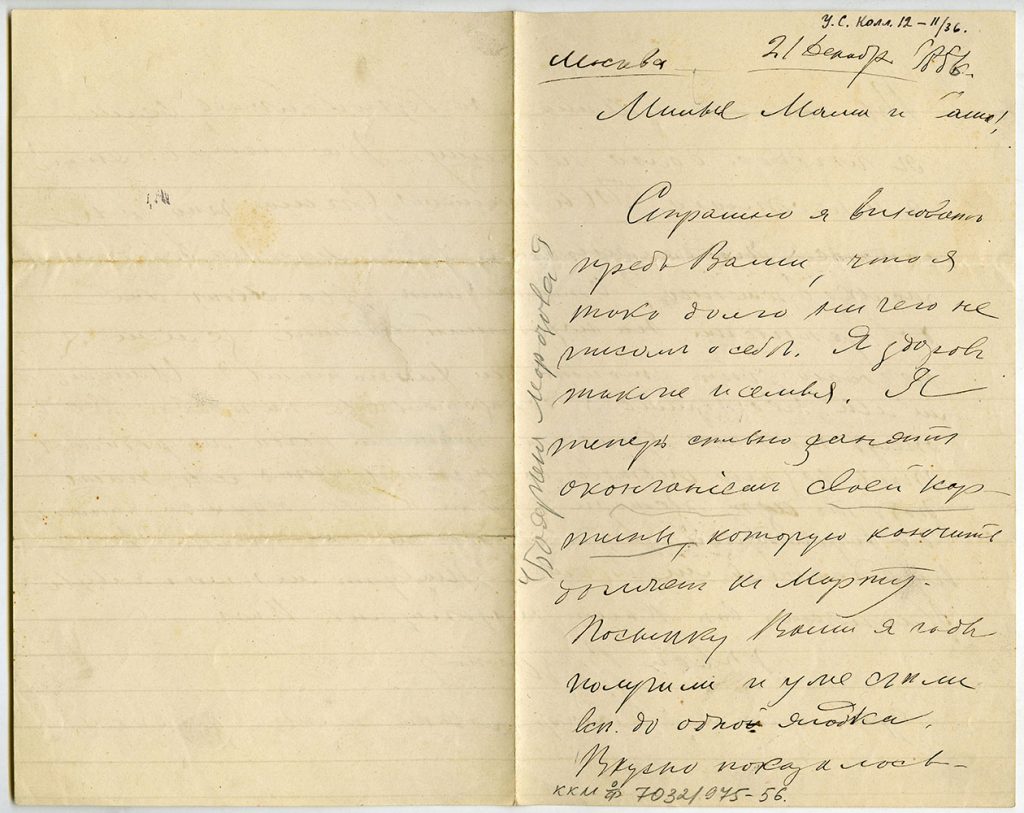 У.С. Колл. 12 – II/36.
Москва
21 Декабр 1886.
Милые Мама и Саша!
Страшно я виноватъ
предъ Вами, что я
такъ долго ничего не
писалъ о себѣ. Я здоровъ
также и семья. Я
теперь сильно занятъ
окончаніемъ своей кар-
тины, которую кончить
долженъ къ Марту.
Посылку Вашу я
получили и уже съѣли
до одной ягодки.
Вкусно показалось –
"Боярыня Морозова"
ККМ ОФ 7032/975-56.